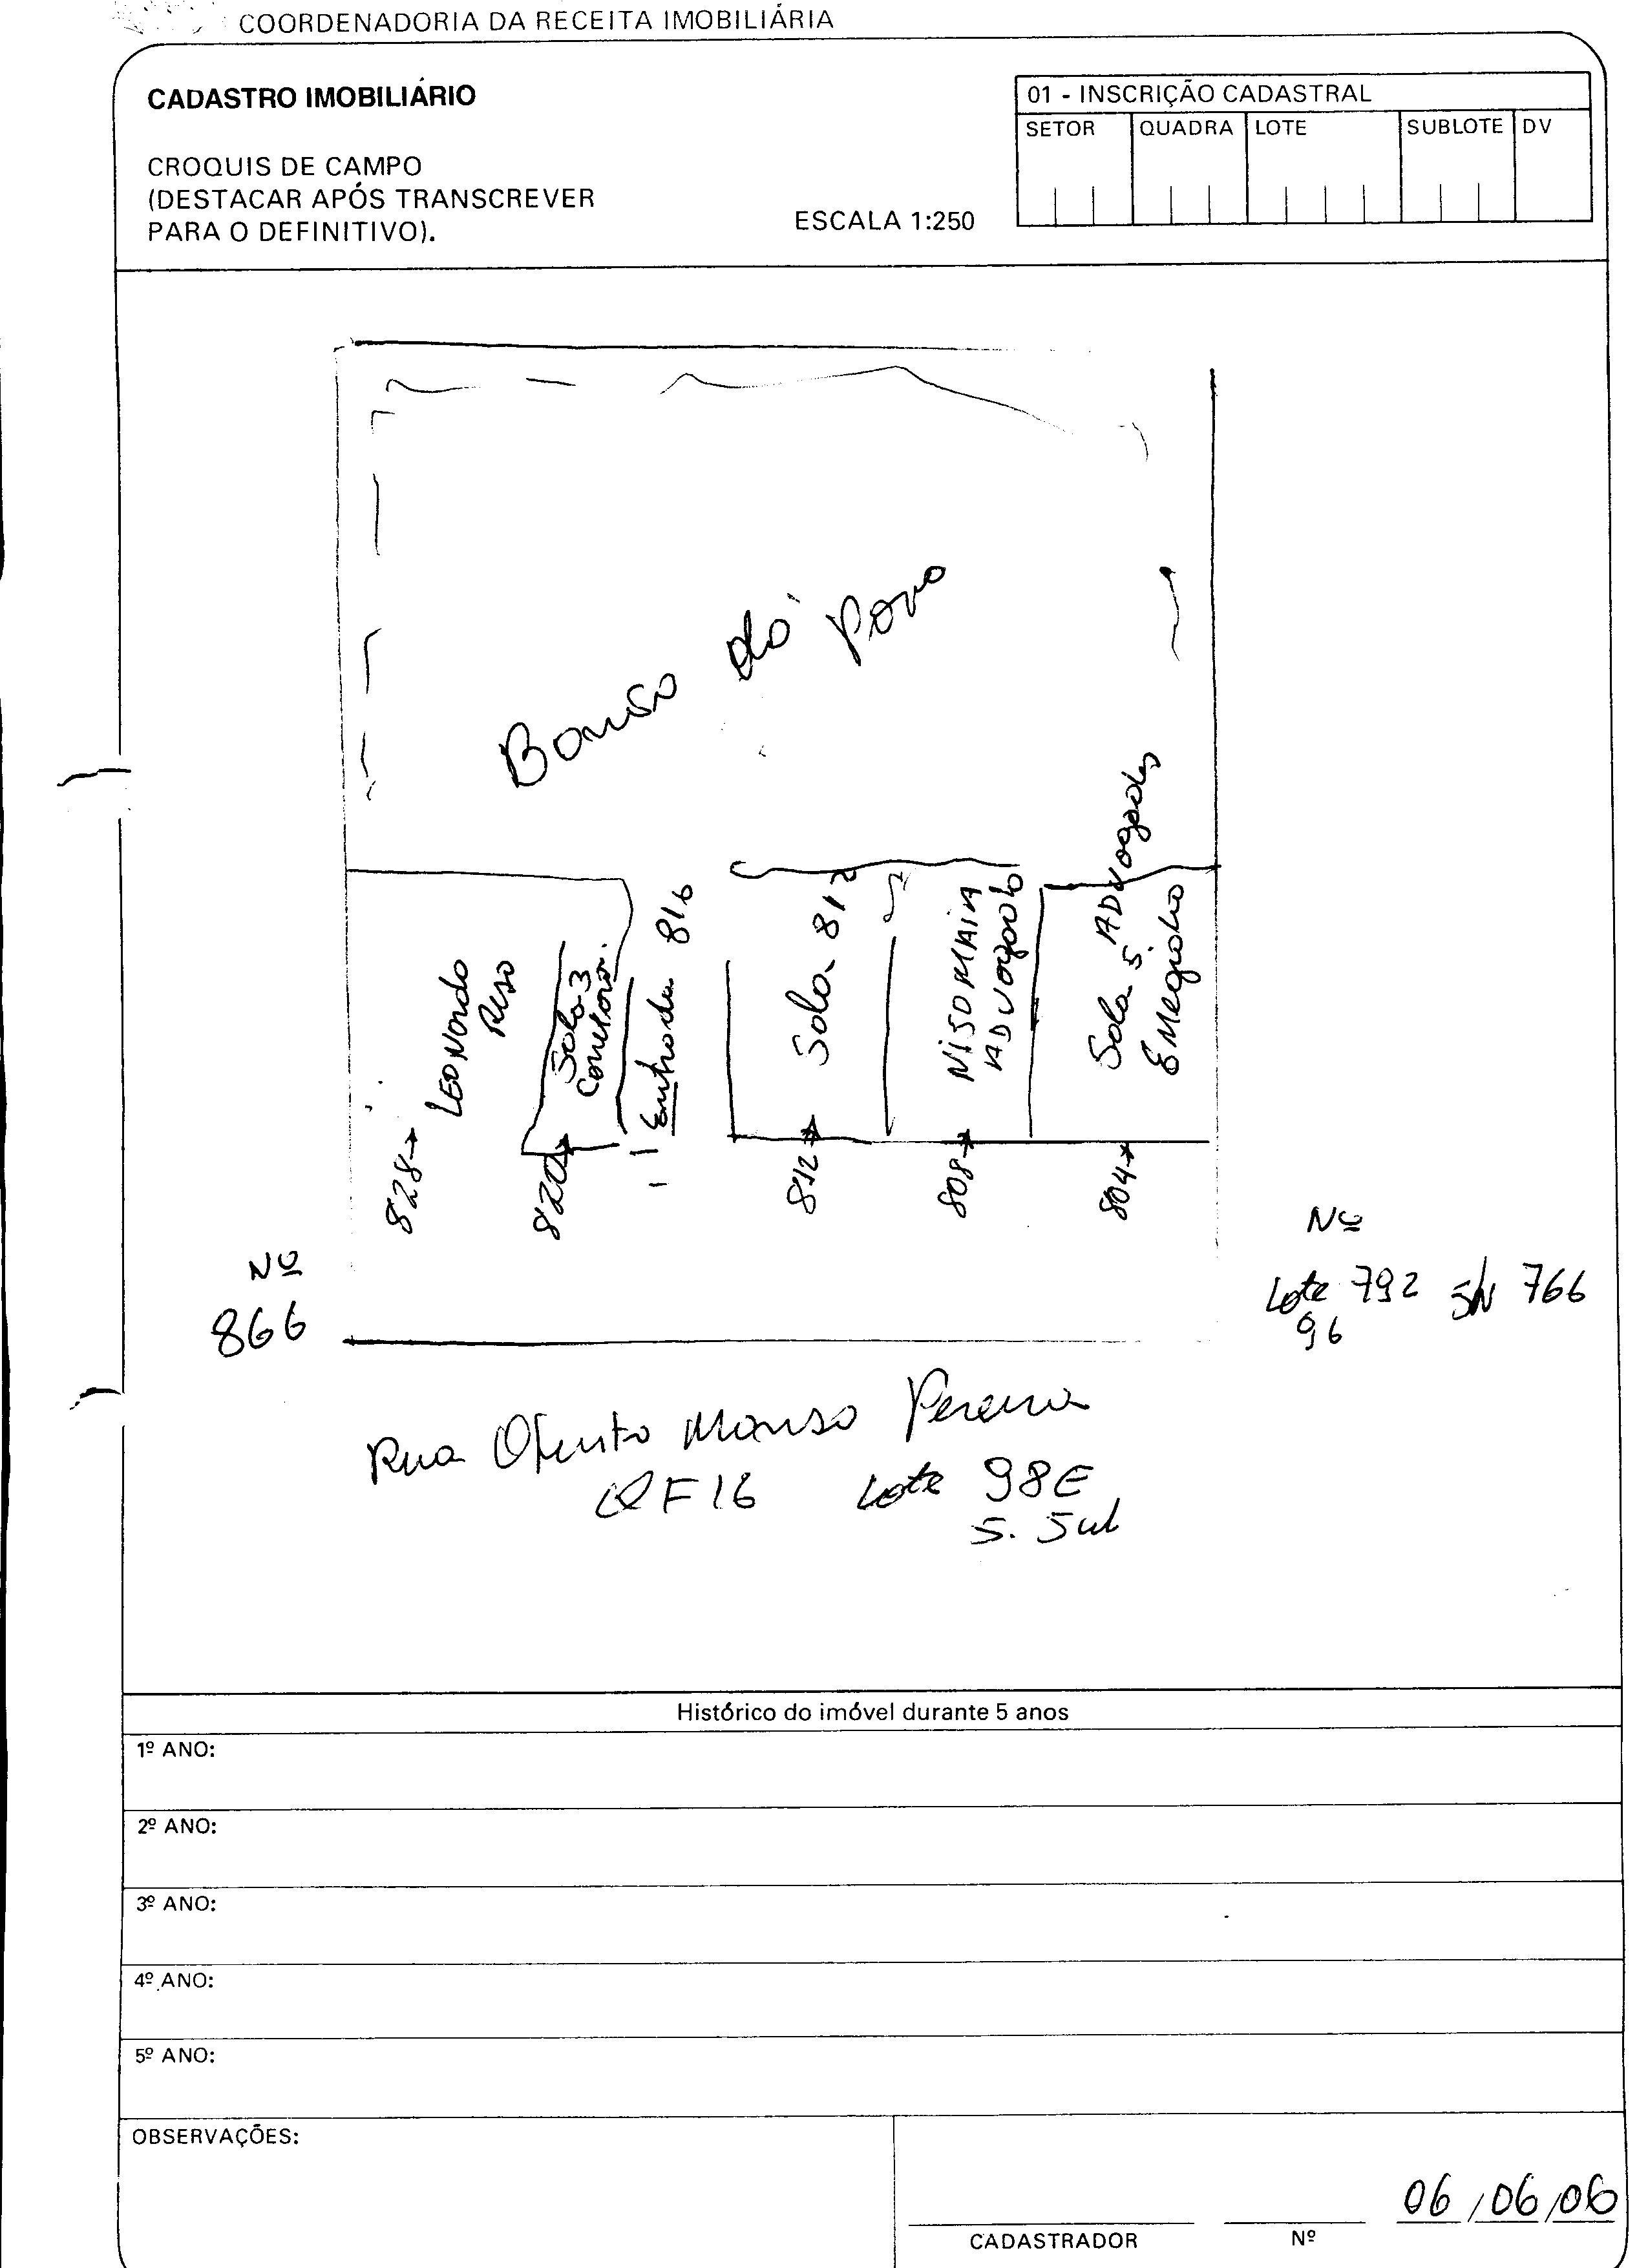 COORDENADORIA DA RECEITA IMOBILIÁRIA
CADASTRO IMOBILIÁRIO
CROQUIS DE CAMPO
(DESTACAR APÓS TRANSCREVER
PARA O DEFINITIVO).
ESCALA 1:250
01 - INSCRIÇÃO CADASTRAL
SETOR QUADRA LOTE SUBLOTE DV
do Povo
Leonardo
Sala 3
Entrada 816
Sala 812
ADVogado
Sala 5 ADVogados
828
820
812
808
804
Nº
866
Nº
Lote 792 S/N 766
96
Rua Manso Pereira
QF16 Lote 98E
S. Sul
Histórico do imóvel durante 5 anos
1º ANO:
2º ANO:
3º ANO:
4º ANO:
5º ANO:
OBSERVAÇÕES:
06/06/06
CADASTRADOR Nº